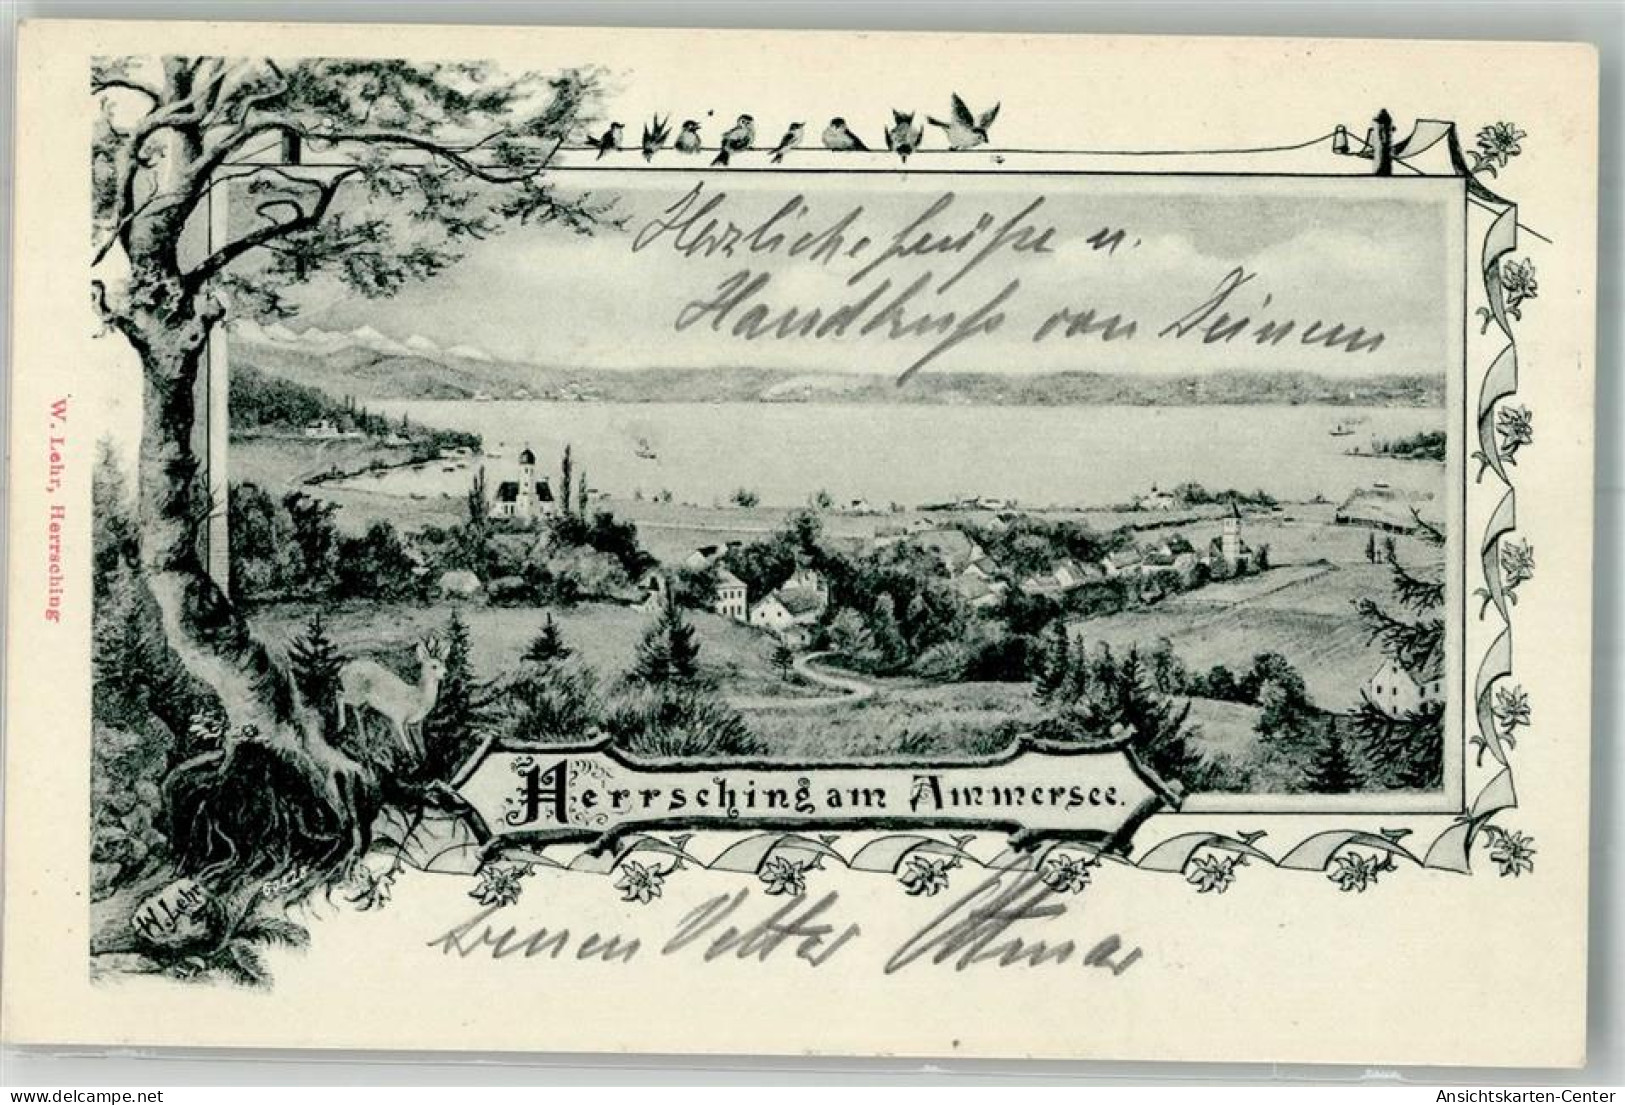 Herzliche Grüße u.
Handkuß von Deinem
W. Lehr, Herrsching
Herrsching am Ammersee.
W. Lehr
treuen Vetter Ottmar
delcampe.net
Ansichtskarten-Center